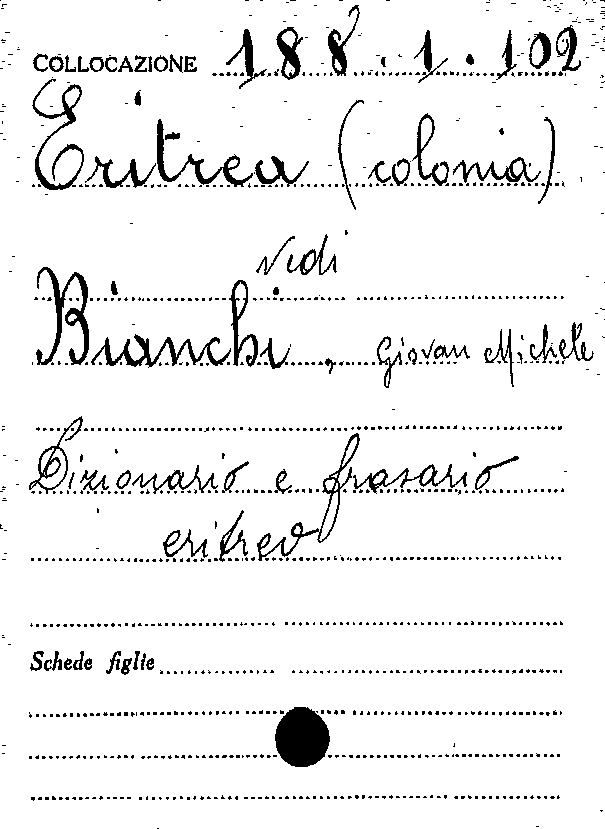 COLLOCAZIONE 188.1.102
Eritrea (colonia)
vedi
Bianchi, Giovan Michele
Dizionario e frasario
eritreo
Schede figlie